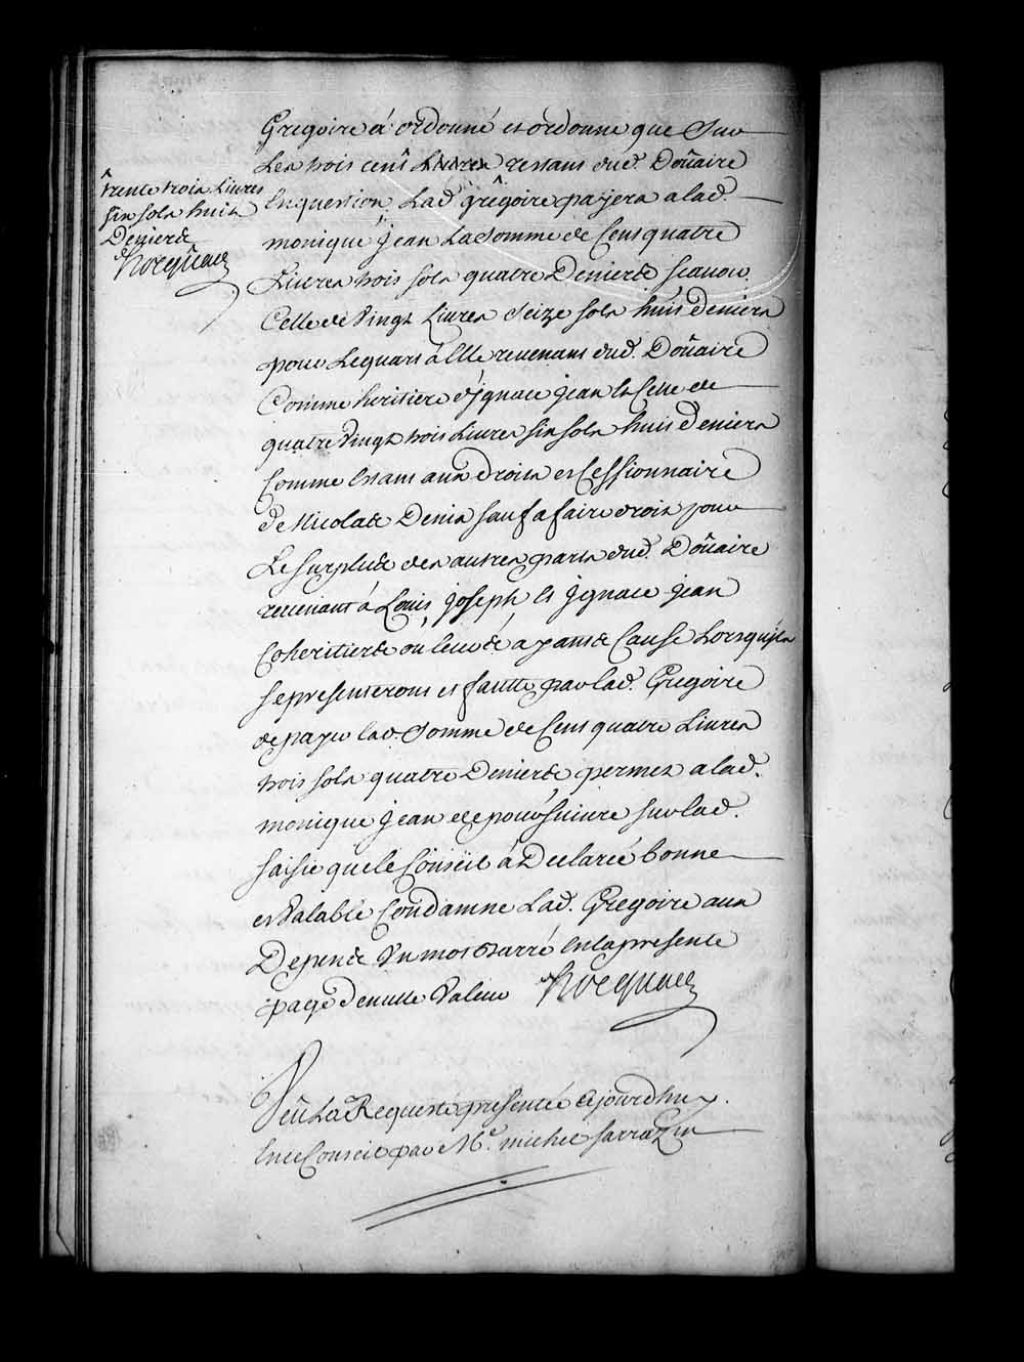 trente trois Livres
six sols huit
Deniers
hocquart
Gregoire á ordonné et ordonne que Sur
Les trois cent Livres restans dud. Doüaire
En question Lad. grêgoire payera a lad.
monique Jean La Somme de Cent quatre
Livres trois sols quatre Deniers scavoir
Celle de Vingt Livres Seize sols huit deniers
pour Le quart á Elle revenant dud. Doüaire
Comme heritiere d'Ignace Jean Et Celle de
quatre Vingt trois Livres six sols huit deniers
Comme Etant aux droits et Cessionnaire
de Nicolas Denis sauf a faire droit pour
Le surplus des autres parts dud. Doüaire
revenant á Louis, Joseph Et Ignace Jean
Coheritiers ou leurs ayans Cause Lorsquils
se presenteront et fautte par lad. Gregoire
de payer lad. Somme de Cent quatre Livres
trois sols quatre Deniers permet a lad.
monique Jean de poursuivre sur lad.
saisie que le Conseil á Declarée bonne
et Valable Condamne Lad. Gregoire aux
Depens Un mot barré En la presente
page de nulle Valeur hocquart
Veu La Requeste presentée cejourdhuy
En ce Conseil par Me. michel sarrazin